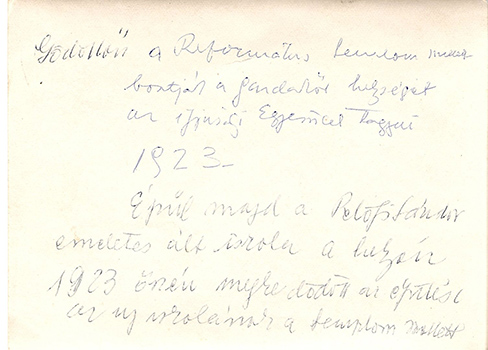 Gödöllőn a Református templom mellett
bontják a gardakör helységét
az ifjúsági Egyesület tagjai
1923
Épül majd a Petőfi Sándor
emeletes ált iskola a helyén
1923 őszén megkezdődött az építése
az uj iskolának a templom mellett